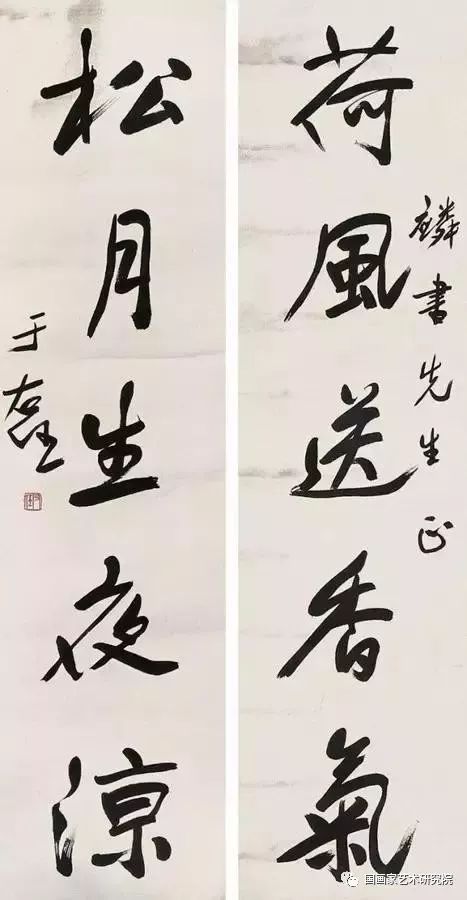 麟書先生正
荷風送香氣
松月生夜涼
于右任
国画家艺术研究院